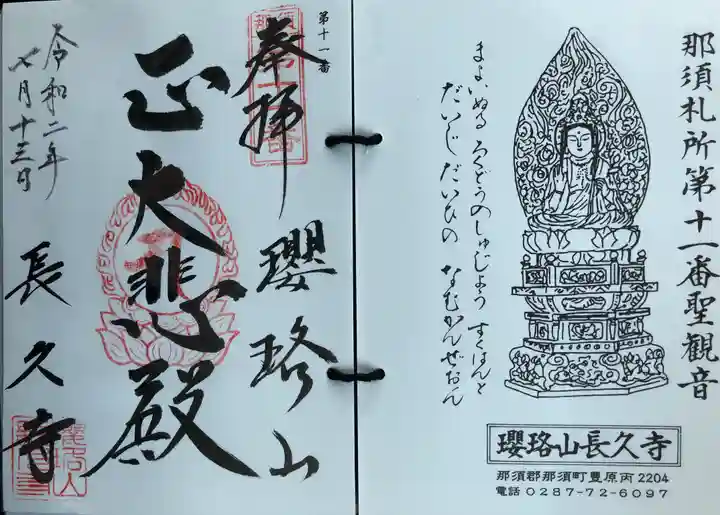 那須札所第十一番聖観音
まよいぬる ろくどうのしゅじょう すくはんと
だいじ だいひの なむかんぜおん
瓔珞山長久寺
那須郡那須町豊原丙2204
電話0287-72-6097
第十一番
奉拝
瓔珞山
正大悲殿
令和二年
七月十三日
長久寺